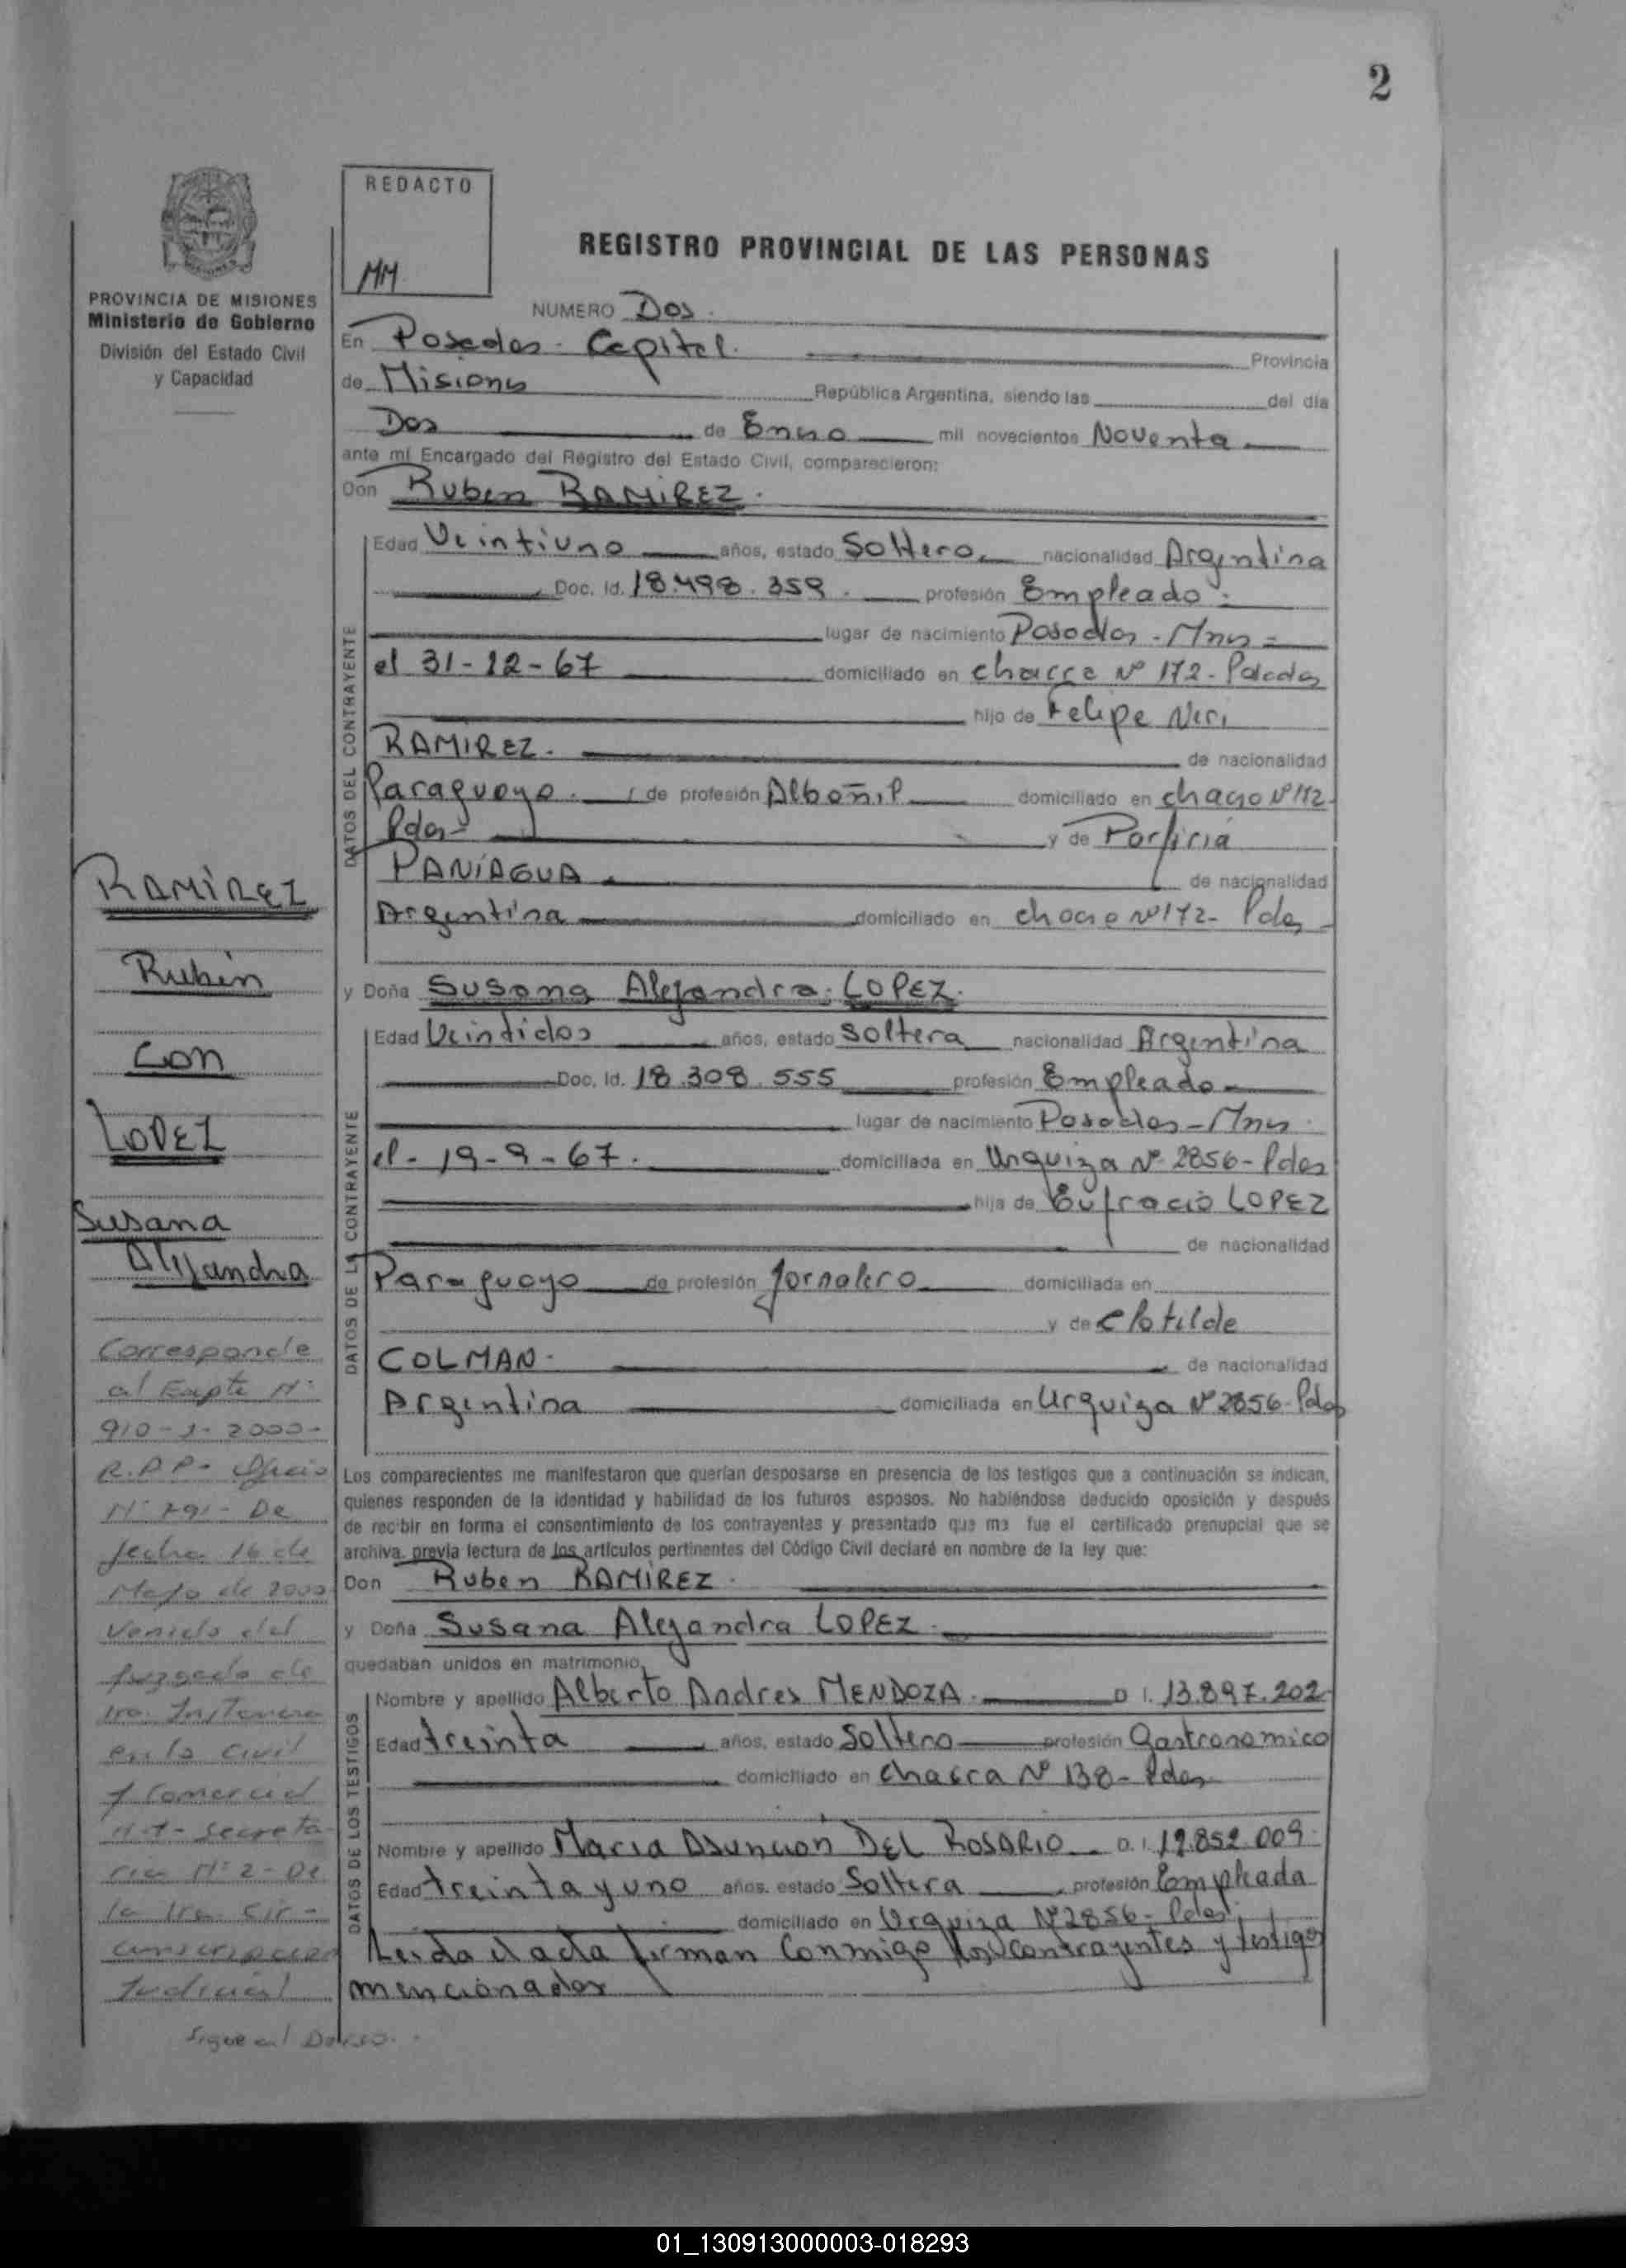 2
REDACTO
MM
PROVINCIA DE MISIONES
Ministerio de Gobierno
División del Estado Civil
y Capacidad
REGISTRO PROVINCIAL DE LAS PERSONAS
NUMERO Dos.
En Posadas - Capital. Provincia
de Misiones República Argentina, siendo las del día
Dos de Enero mil novecientos Noventa
ante mí Encargado del Registro del Estado Civil, comparecieron:
Don Ruben RAMIREZ.
DATOS DEL CONTRAYENTE
Edad Veintiuno años, estado Soltero nacionalidad Argentina
Doc. Id. 18.498.359. profesión Empleado.
lugar de nacimiento Posadas - Mnes
el 31-12-67 domiciliado en chacra Nº 172 - Posadas
hijo de Felipe Neri
RAMIREZ. de nacionalidad
Paraguayo. de profesión Albañil domiciliado en chacra Nº 172
Pdas y de Porfiria
PANÍAGUA. de nacionalidad
Argentina domiciliado en chacra Nº 172- Pdas
y Doña Susana Alejandra LOPEZ.
DATOS DE LA CONTRAYENTE
Edad Veintidos años, estado Soltera nacionalidad Argentina
Doc. Id. 18.308.555 profesión Empleado
lugar de nacimiento Posadas - Mnes.
el - 19-9-67. domiciliada en Urquiza Nº 2856- Pdas
hija de Eufracio LOPEZ
de nacionalidad
Paraguayo de profesión Jornalero domiciliada en
y de Clotilde
COLMAN- de nacionalidad
Argentina domiciliada en Urquiza Nº 2856- Pdas
Los comparecientes me manifestaron que querían desposarse en presencia de los testigos que a continuación se indican,
quienes responden de la identidad y habilidad de los futuros esposos. No habiéndose deducido oposición y después
de recibir en forma el consentimiento de los contrayentes y presentado que me fue el certificado prenupcial que se
archiva, previa lectura de los artículos pertinentes del Código Civil declaré en nombre de la ley que:
Don Ruben RAMIREZ.
y Doña Susana Alejandra LOPEZ.
quedaban unidos en matrimonio,
DATOS DE LOS TESTIGOS
Nombre y apellido Alberto Andres MENDOZA. D I. 13.897.202
Edad treinta años, estado Soltero profesión Gastronomico
domiciliado en Chacra Nº 138- Pdas
Nombre y apellido Maria Asuncion DEL ROSARIO D. I. 12.852.009
Edad treinta y uno años, estado Soltera profesión Empleada
domiciliado en Urquiza Nº 2856- Pdas.
Leida el acta firman conmigo los contrayentes y testigos
mencionados
RAMÍREZ
Rubén
Con
LOPEZ
Susana
Alejandra
Corresponde
al Expte Nº
910-J-2000-
R.P.P- Oficio
Nº 791- De
fecha 16 de
Mayo de 2000
Venido del
Juzgado de
1ra. Instancia
en lo Civil
y Comercial
Nº 1- Secreta-
ria Nº 2- De
la 1ra. Cir-
cunscripcion
Judicial
Sigue al Dorso.
01_130913000003-018293